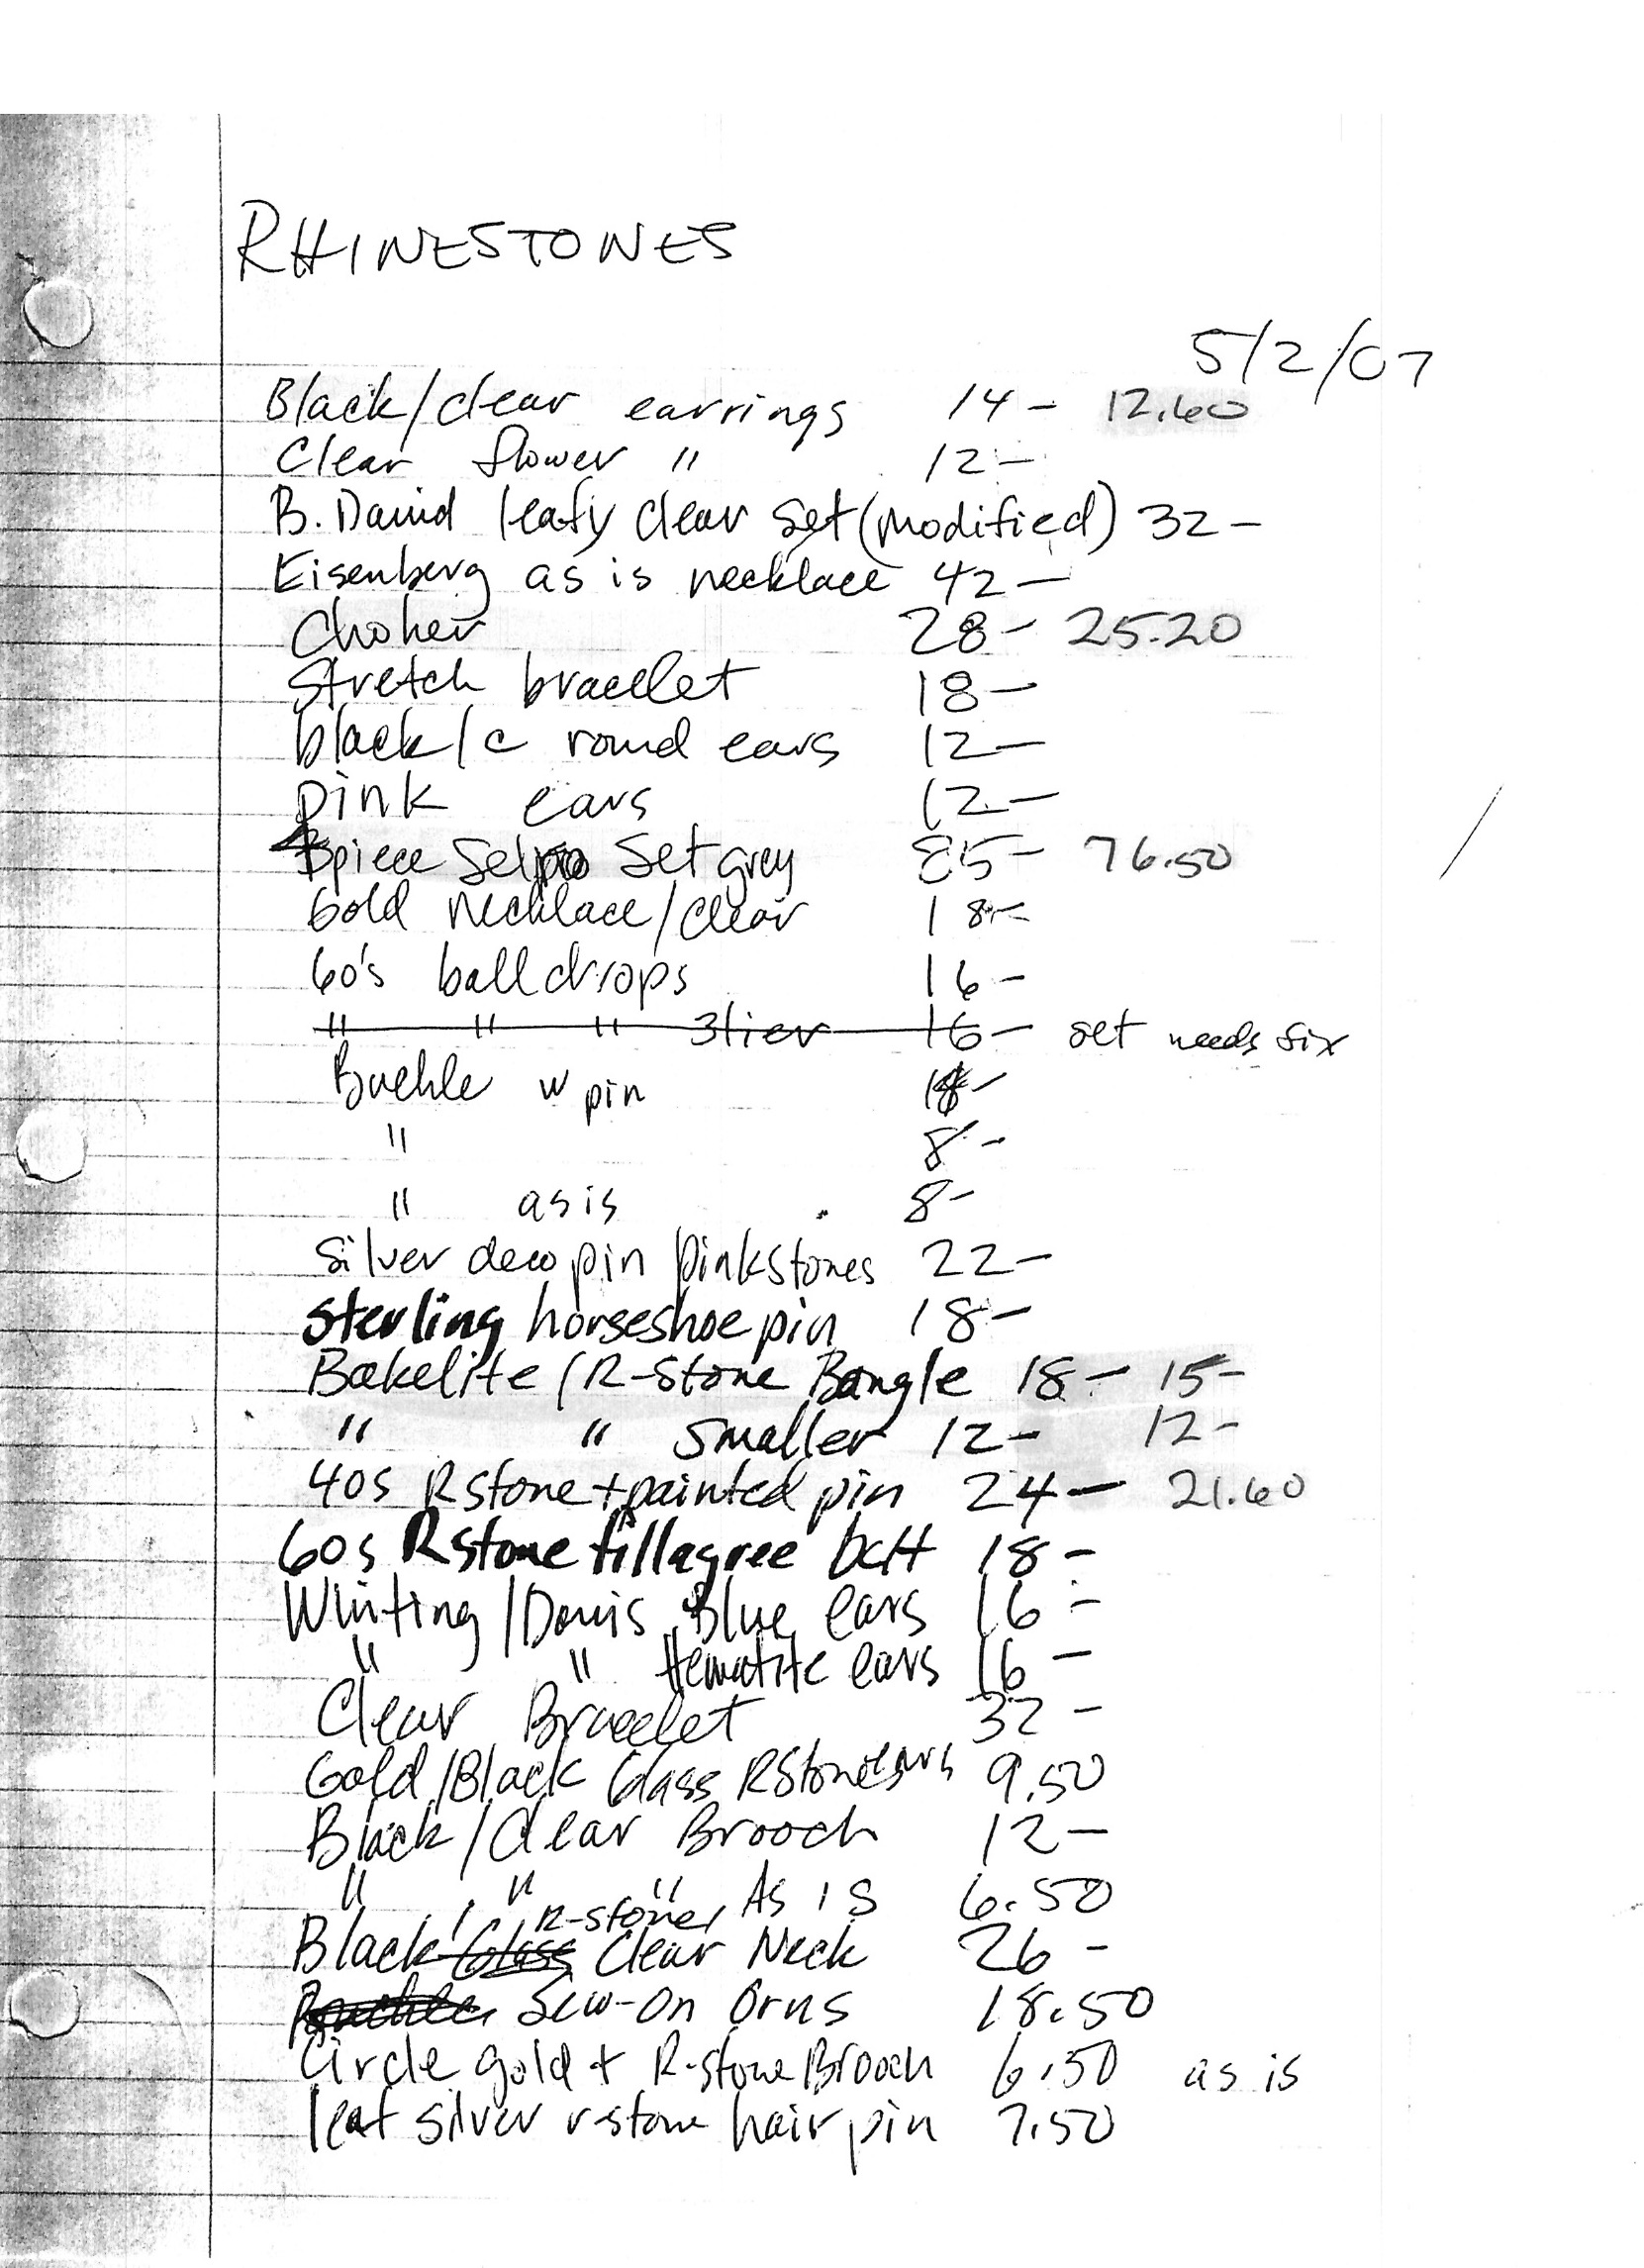 RHINESTONES
5/2/07
Black/clear earrings 14- 12.60
Clear flower " 12-
B. David leafy clear set (modified) 32-
Eisenberg as is necklace 42-
Choker 28- 25.20
Stretch bracelet 18-
black/c round ears 12-
pink ears 12-
3piece Set grey 85- 76.50
Gold necklace/clear 18-
60's ball drops 16-
" " " 3tier 16- set needs six
Buckle w pin 18-
" 8-
" as is 8-
Silver deco pin pinkstones 22-
Sterling horseshoe pin 18-
Bakelite/R-Stone Bangle 18- 15-
" " smaller 12- 12-
40s Rstone+painted pin 24- 21.60
60s Rstone fillagree 18-
Whiting/Davis Blue ears 16-
" " Hematite ears 16-
Clear Bracelet 32-
Gold/Black Glass RStone ears 9.50
Black/Clear Brooch 12-
" " " As is 6.50
Black Glass R-stone, Clear Neck 26-
Buckle Sew-On Orns 18.50
Circle gold + R-stone Brooch 6.50 as is
leaf silver r-stone hair pin 7.50